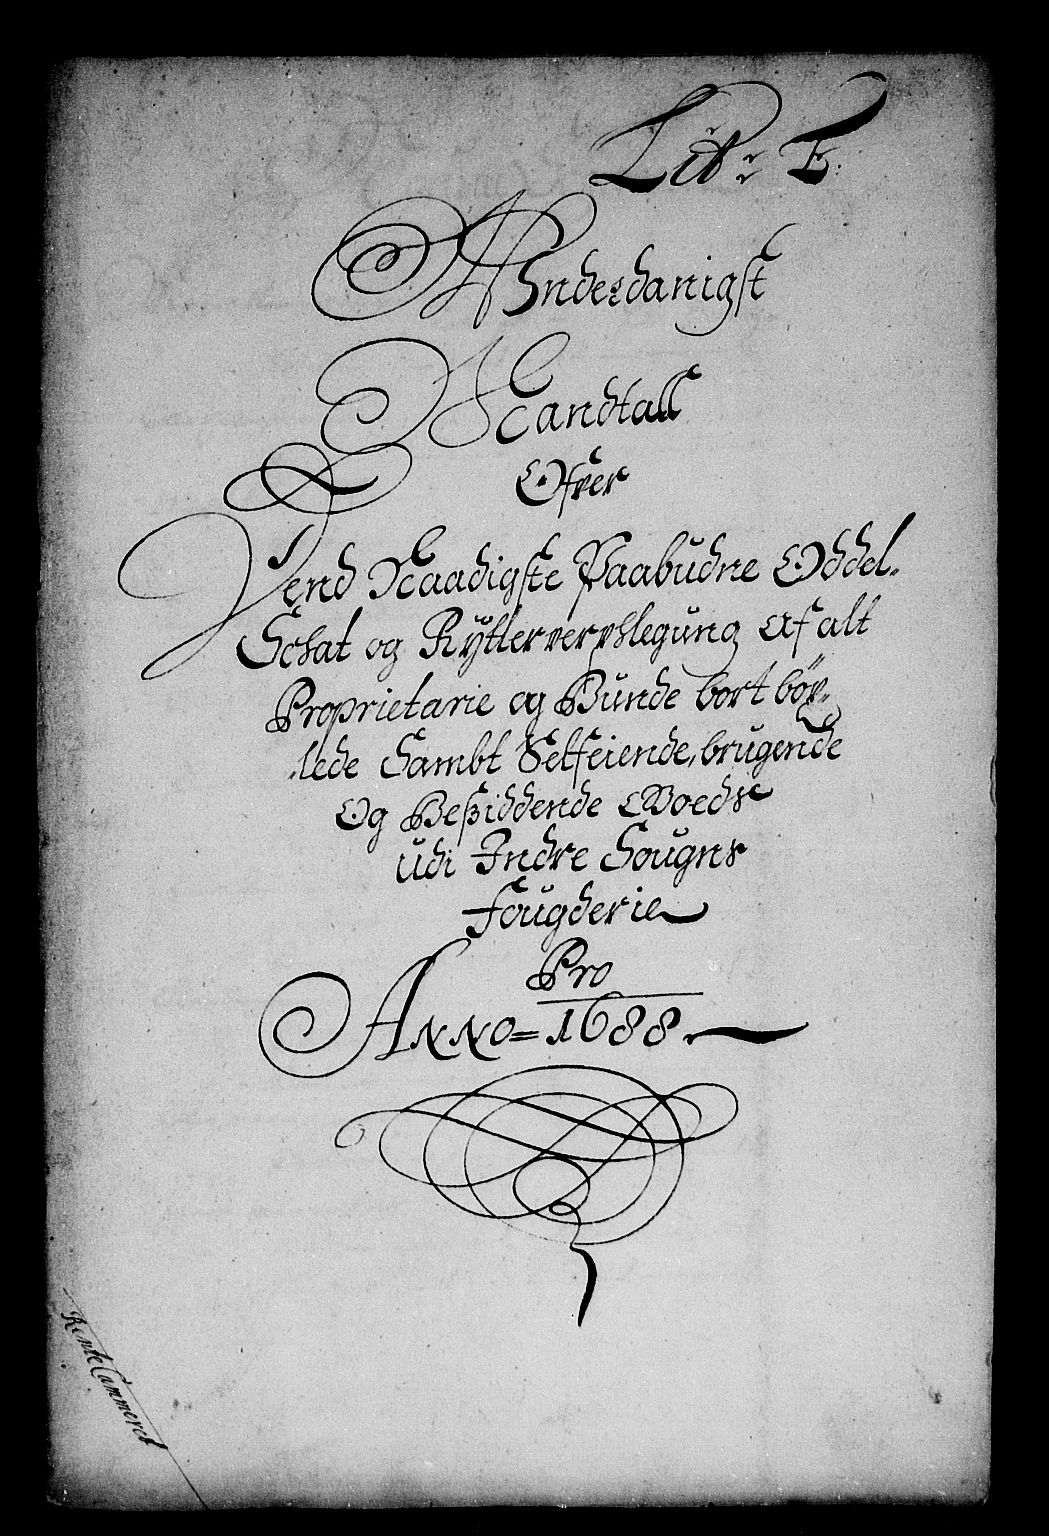 Lit: E:
Underdanigst
Mandtall
Ofver
Dend Naadigste Paabudne Oddel-
Schat og Rÿtterverphlegung af alt
Proprietarie og Bunde bort böx-
lede Sambt Selfeiende, brugende
Og Beßiddende Goeds
udi Indre Sougns
Fougderie
Pro
Anno=1688.
RenteCammeret